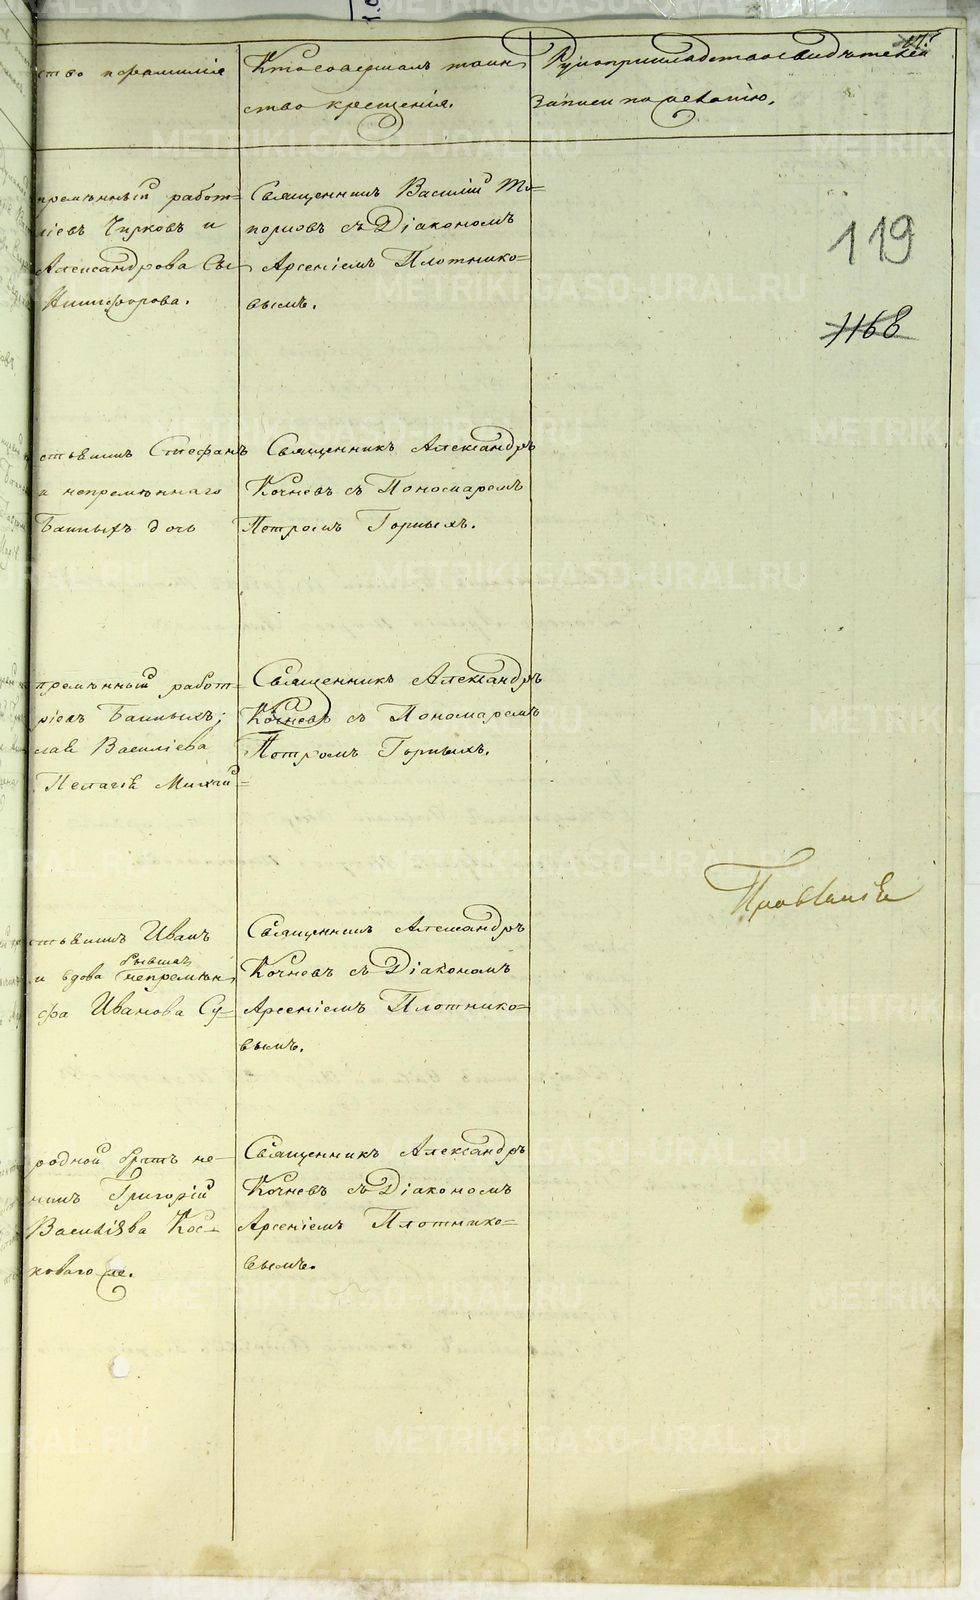 ство и фамилія
Кто совершалъ таин
ство крещенія.
Рукоприкладство свидѣтелей
записи по желанію.
119
1168
премѣнный работ-
ріевъ Чирковъ и
Александрова Сы-
Никифорова.
Священникъ Василій То-
порковъ съ Діакономъ
Арсеніемъ Плотнико-
вымъ.
Стефанъ
и непремѣннаго
Банныхъ дочь
Священникъ Александръ
Кочневъ съ Пономаремъ
Петромъ Горныхъ.
премѣнный работ-
ріевъ Банныхъ;
Василіева
Пелагія Михай-
Священникъ Александръ
Кочневъ съ Пономаремъ
Петромъ Горныхъ.
Иванъ
бывшаго
и вдова непремѣн
Иванова Су-
Священникъ Александръ
Кочневъ съ Діакономъ
Арсеніемъ Плотнико-
вымъ.
родной братъ не-
Григорій
Василіева Кос-
коваго
Священникъ Александръ
Кочневъ съ Діакономъ
Арсеніемъ Плотнико-
вымъ.
METRIKI.GASO-URAL.RU